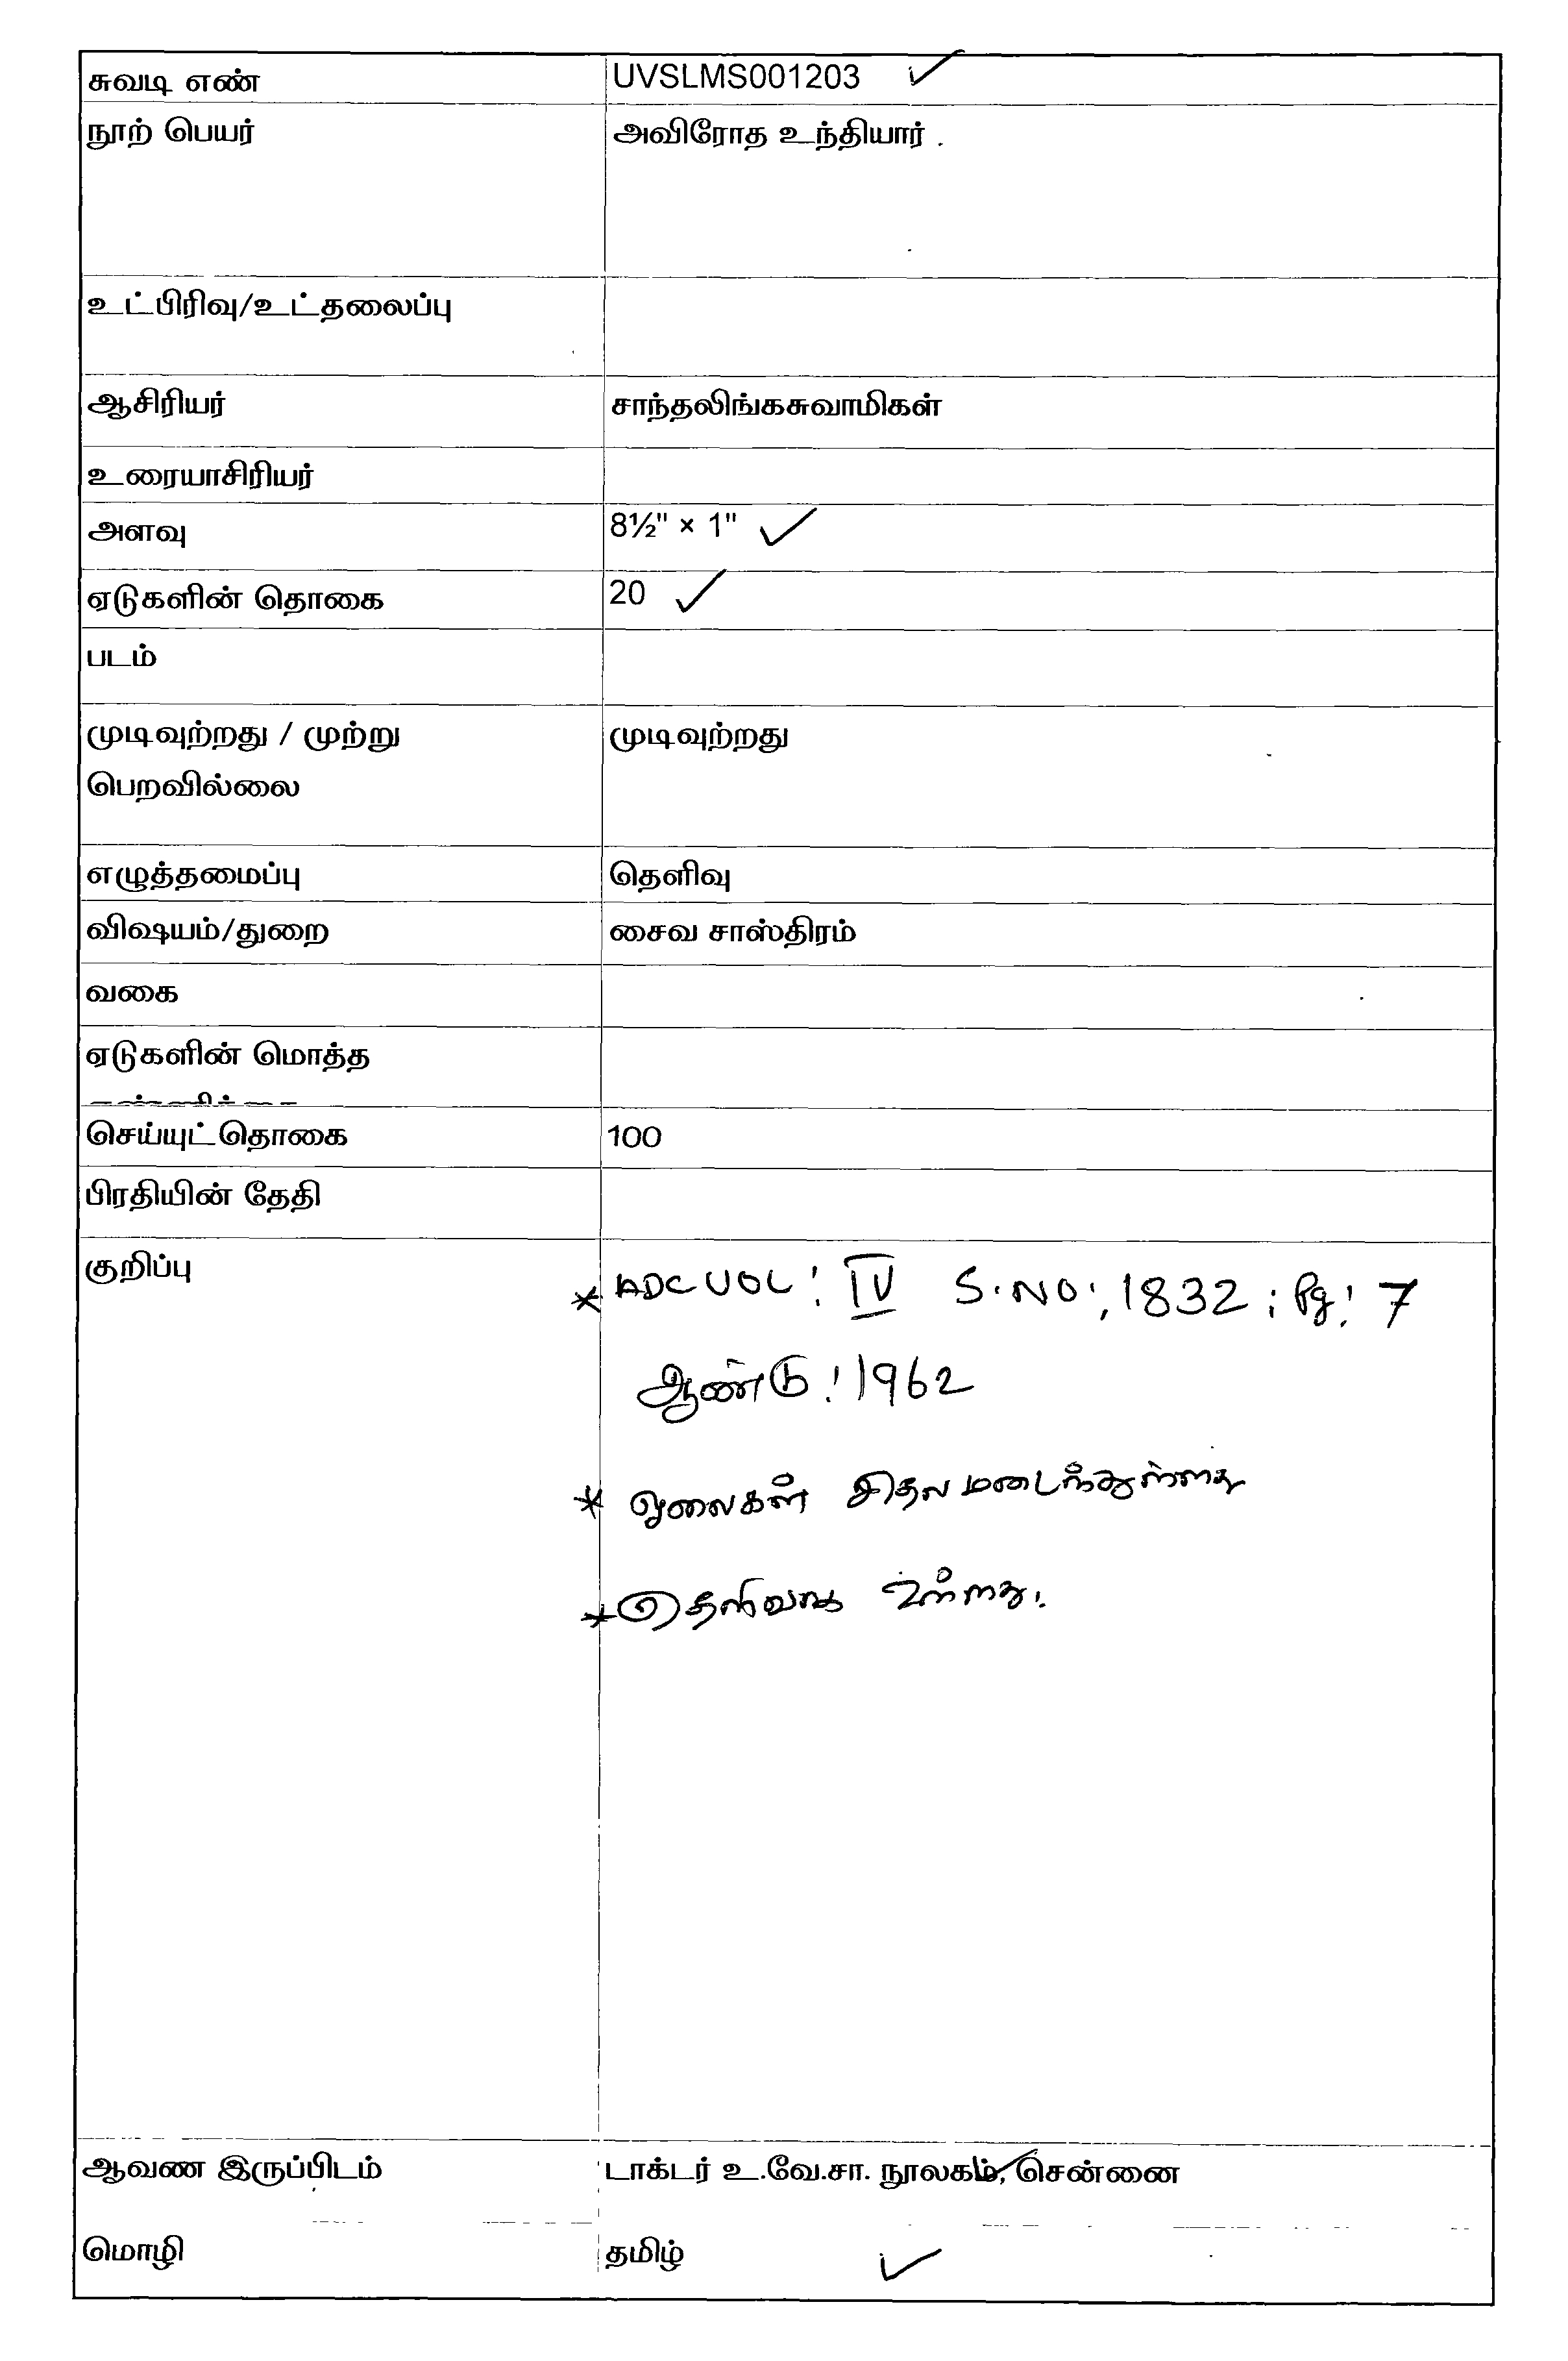 சுவடி எண் UVSLMS001203 ✓
நூற் பெயர் அவிரோத உந்தியார் .
உட்பிரிவு/உட்தலைப்பு
ஆசிரியர் சாந்தலிங்கசுவாமிகள்
உரையாசிரியர்
அளவு 8½" × 1" ✓
ஏடுகளின் தொகை 20 ✓
படம்
முடிவுற்றது / முற்று முடிவுற்றது
பெறவில்லை
எழுத்தமைப்பு தெளிவு
விஷயம்/துறை சைவ சாஸ்திரம்
வகை
ஏடுகளின் மொத்த
செய்யுட்தொகை 100
பிரதியின் தேதி
குறிப்பு
* ADC VOL: IV S.NO: 1832; Pg: 7
ஆண்டு: 1962
* ஓலைகள் சிதலமடைந்துள்ளது
* தெளிவாக உள்ளது.
ஆவண இருப்பிடம் டாக்டர் உ.வே.சா. நூலகம், சென்னை ✓
மொழி தமிழ் ✓